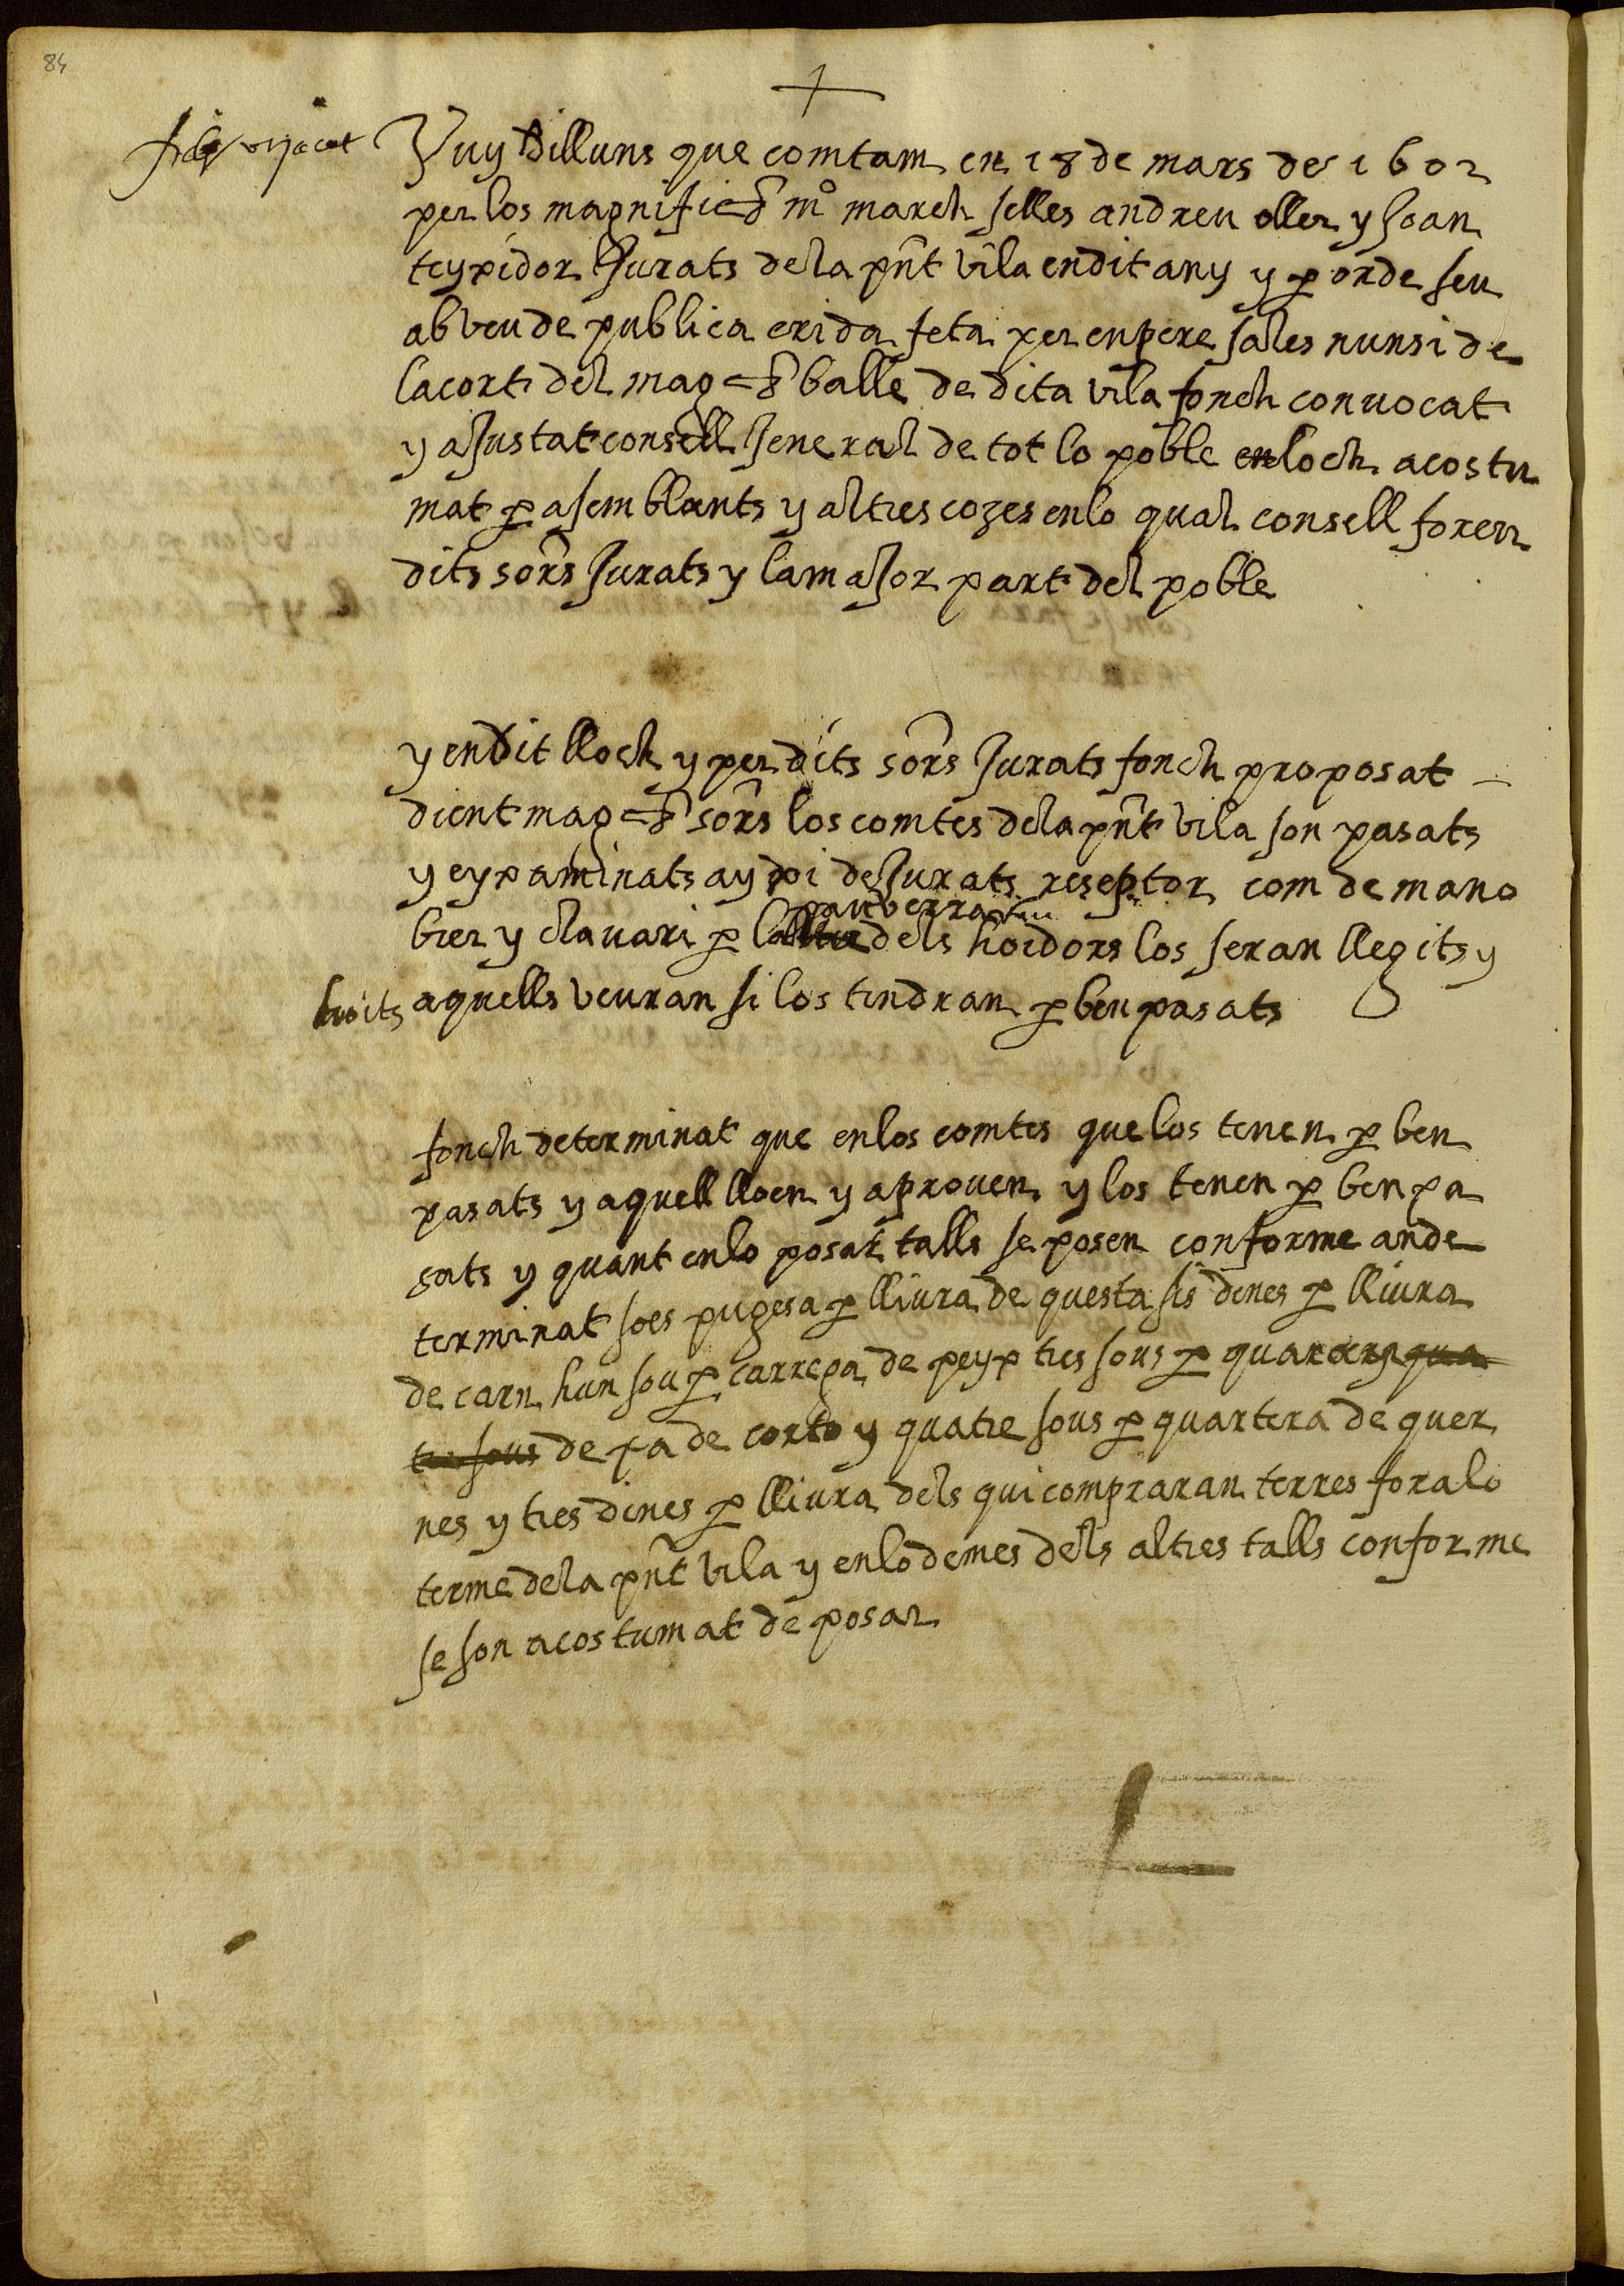 84
Vuy Dilluns que comtam en 18 de mars de 1602
per los magnifichs mº march selles andreu oller y Joan
teyxidor Jurats de la pnt vila en dit any y p orde seu
ab veu de publica crida feta per en pere sales nunsi de
la cort del magch balle de dita vila fonch convocat
y aJustat consell Jeneral de tot lo poble en loch acostu
mat p a semblants y altres cozes en lo qual consell foren
dits sors Jurats y la maJor part del poble
y en dit lloch y per dits sors Jurats fonch proposat
dient magchs sors los comtes de la pnt vila son pasats
y eyxaminats axi de Jurats reseptor com de mano
brer y clavari p dels hoidors los seran llegits y
hoits aquells veuran si los tindran p ben pasats
fonch determinat que en los comtes que los tenen p ben
pasats y aquell lloen y aproven y los tenen p ben pa
sats y quant en lo posar talls se posen conforme an de
terminat soes pugesa p lliura de questa sis dines p lliura
de carn hun sou p carrega de peyx tres sous p qua
de quatre sous p quartera de quer
nes y tres dines p lliura dels qui compraran terres fora lo
terme de la pnt vila y en lo demes dels altres talls conforme
se son acostumat de posar